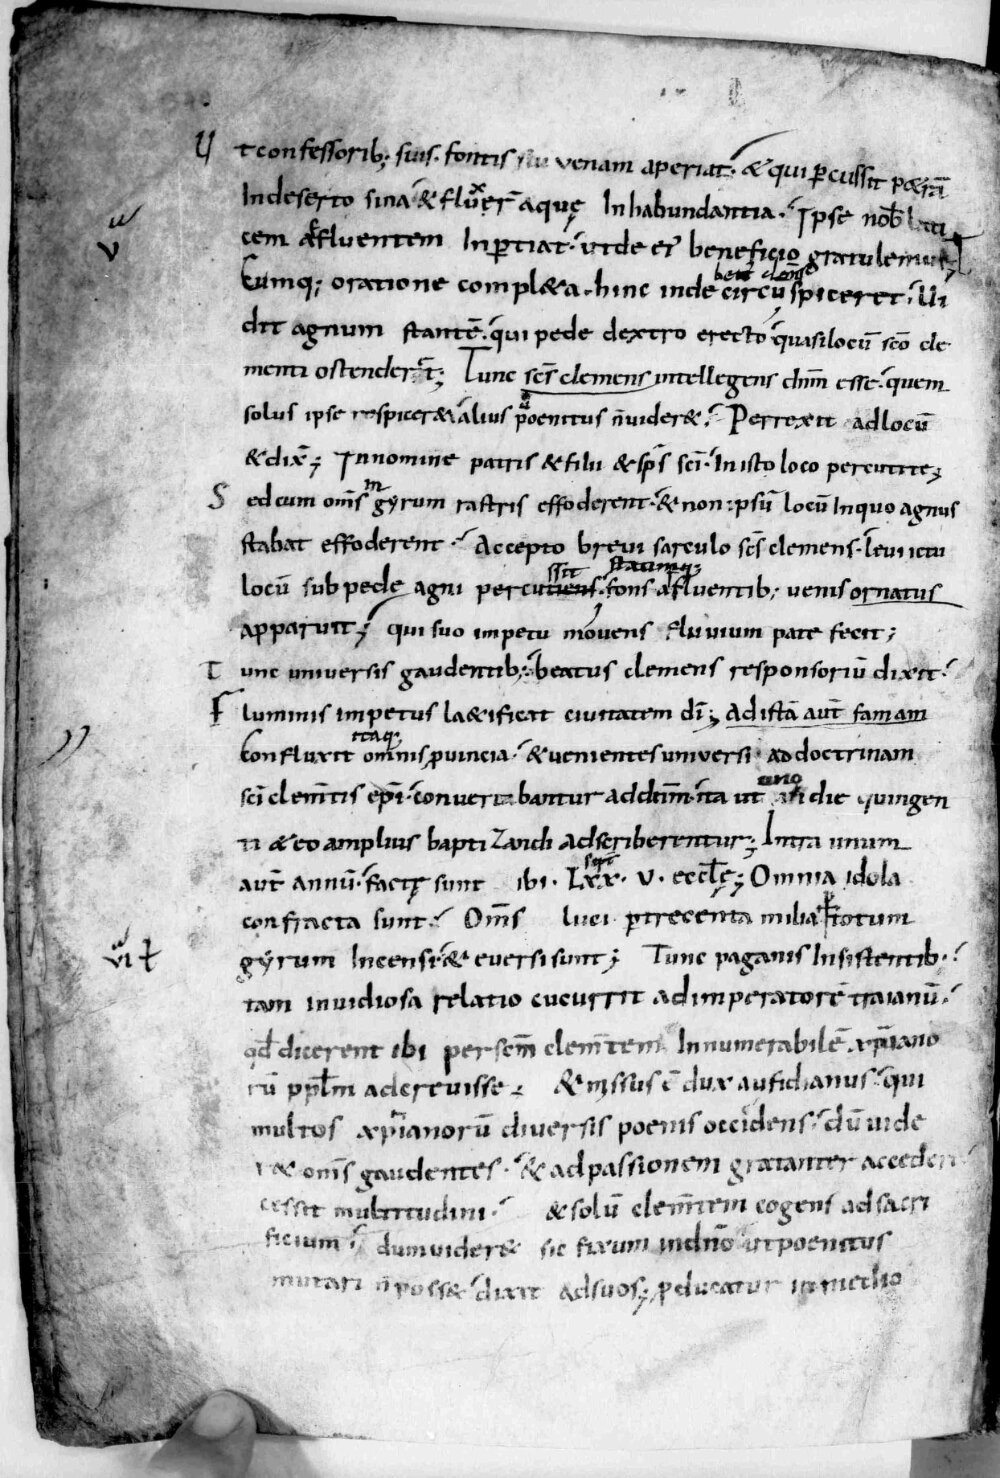 Ut confessorib; suis. fontis sui venam aperiat. & qui percussit p&rā
In deserto sina & fluxer̄ aquę In habundantia. Ipse nob̄ lati
cem affluentem Inpertiat. unde ei beneficio gratulemur;
Cumq; oratione compl&a. hinc inde beat clem̄s circūspiceret. Ui
dit agnum stantē. qui pede dextro erecto quasi locū sc̄o cle
menti ostender&; Tunc sc̄s clemens intellegens chm̄ esse. quem
solus ipse respicer& & alius p̄oenitus n̄ vider&. Perrexit ad locū
& dix̄; In nomine patris & filii & sp̄s sc̄i. In isto loco percutite;
Sed cum om̄s in gyrum rastris effoderent. & non ipsū locū In quo agnus
stabat effoderent. Accepto brevi sarculo sc̄s clemens. levi ictu
locū sub pede agni percutiens ssit statimq; fons affluentib; venis ornatus
apparuit; qui suo impetu movens fluvium pate fecit;
Tunc universis gaudentib; beatus clemens responsoriū dixit.
Fluminis impetus l&ificat civitatem dī; Ad istā aut̄ famam
Confluxit itaq; omnis provincia. & venientes universi ad doctrinam
sc̄i clem̄tis ep̄i. convertebantur ad dn̄m. ita ut uno die quingen
ti & eo amplius baptizandi adscriberentur; Intra unum
aut̄ annū. factę sunt ibi. Lxx. v. eccl̄ę; Omnia idola
confracta sunt. Om̄s luci per trecenta milia totum
gyrum Incensi & eversi sunt; Tunc paganis Insistentib.
tam invidiosa relatio cucurrit ad imperatorē traianū.
qd̄ dicerent ibi per sem̄ clem̄tem Innumerabilē xp̄iano
rū ppl̄m adcrevisse. & missus ē dux aufidianus. qui
multos xp̄ianorū diversis poenis occidens. dū vide
r& om̄s gaudentes. & ad passionem gratanter accedere
cessit multitudini. & solū clem̄tem cogens ad sacri
ficium. dum vider& sic fixum in dn̄o ut poenitus
mutari n̄ poss& dixit ad suos; producatur in medio